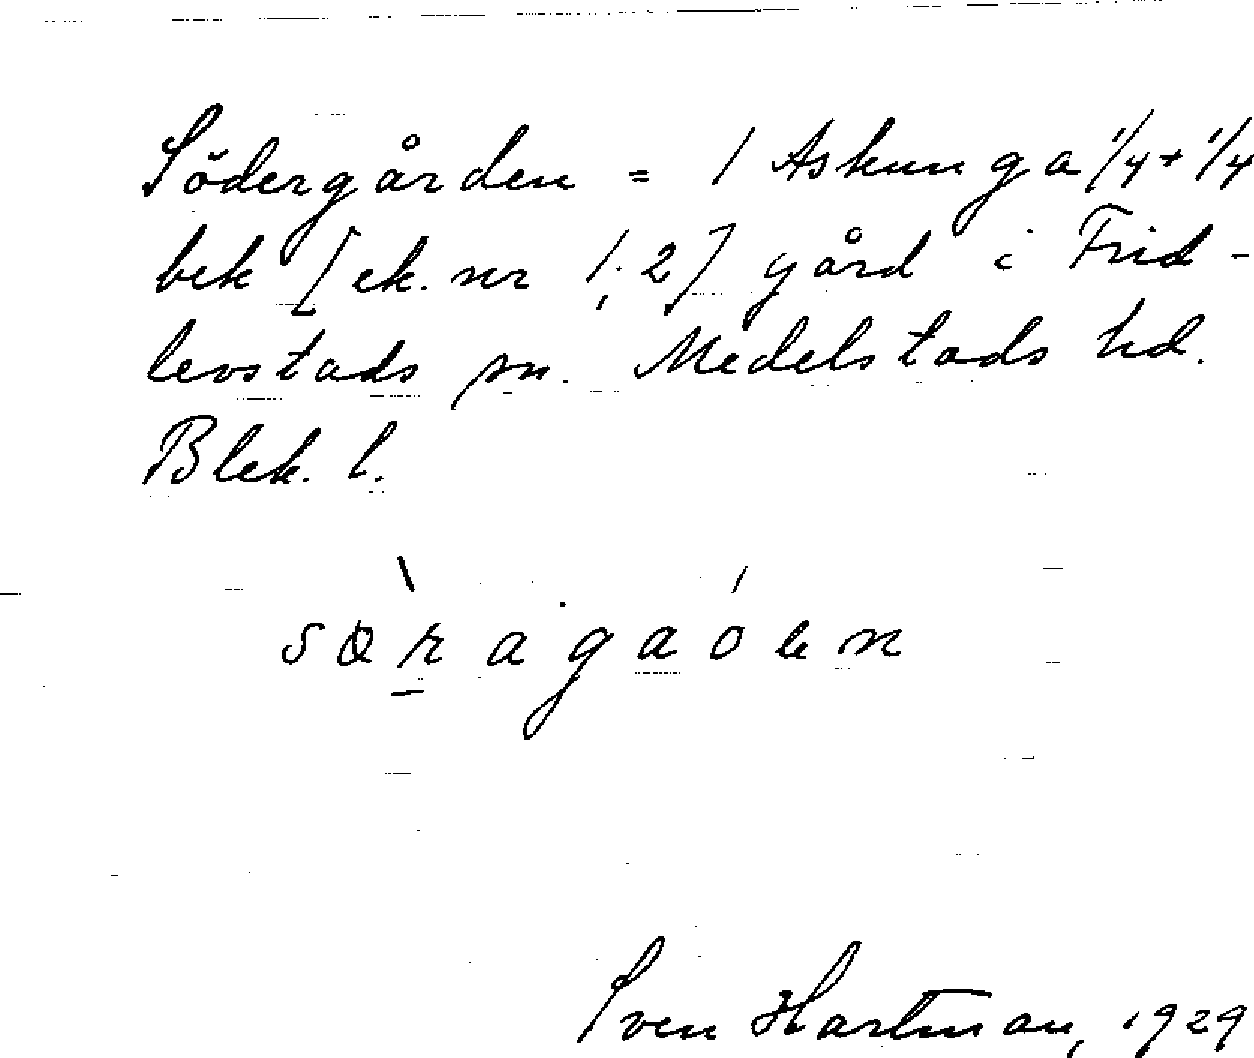 Södergården = 1 Askunga 1/4 + 1/4
bek [ek. nr 1; 2] gård i Frid-
levstads sn. Medelstads hd.
Blek. l.
Sven Hartman, 1929